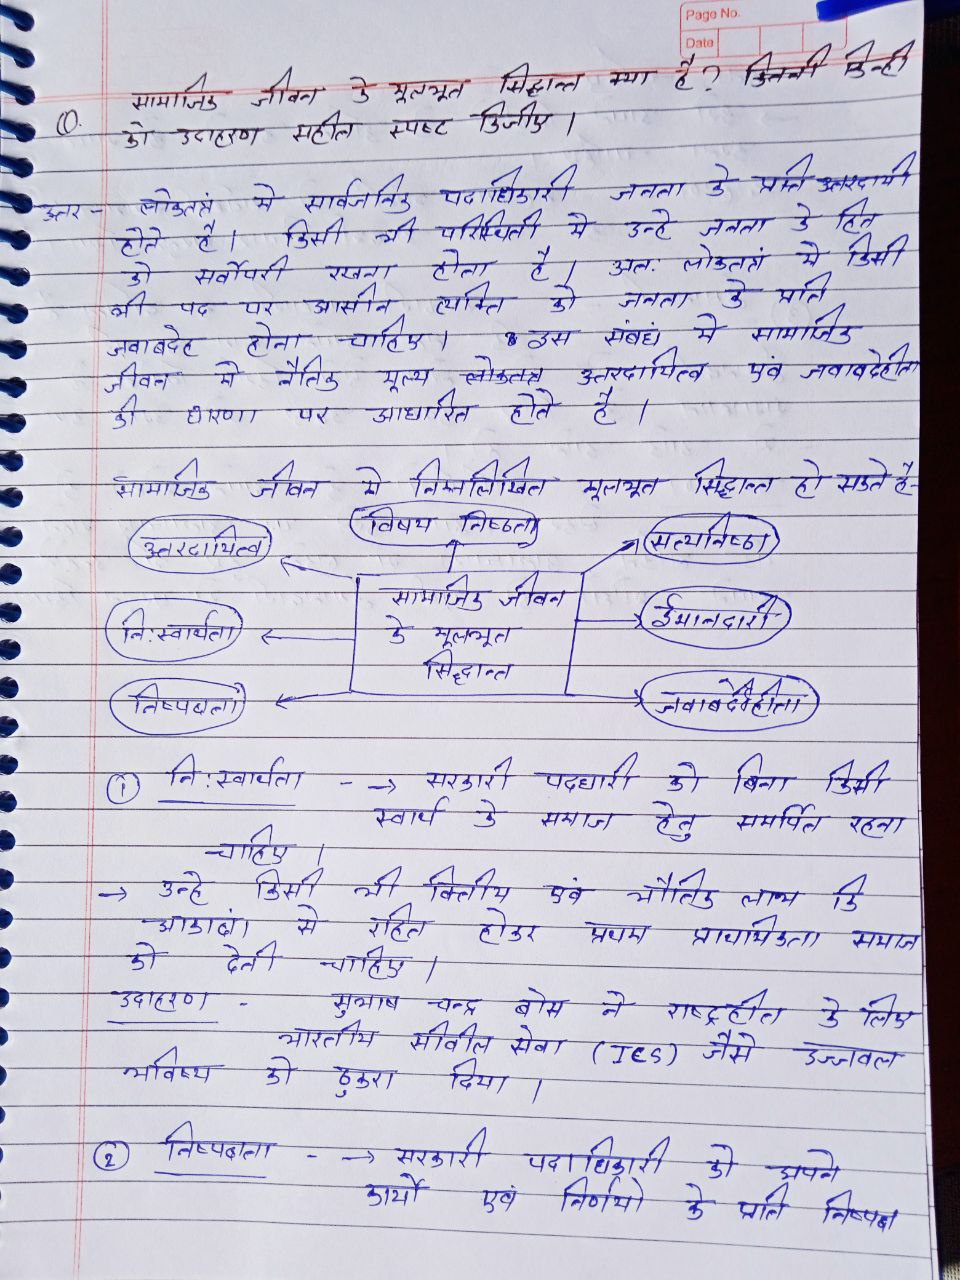 Page No.
Date
Q. सामाजिक जीवन के मूलभूत सिद्धान्त क्या है? किन्ही
को उदाहरण सहीत स्पष्ट किजीए।
उत्तर - लोकतत्रं मे सार्वजनिक पदाधिकारी जनता के प्रति उत्तरदायी
होते है। किसी भी परिस्थिती मे उन्हे जनता के हित
को सर्वोपरी रखना होता है। अत: लोकतत्रं मे किसी
भी पद पर आसीन व्यक्ति को जनता के प्रति
जवाबदेह होना चाहिए। इस संबधं मे सामाजिक
जीवन मे नैतिक मूल्य लोकतत्रं उत्तरदायित्व एवं जवाबदेहीता
की धारणा पर आधारित होते है।
सामाजिक जीवन मे निम्नलिखित मूलभूत सिद्धान्त हो सकते है-
उत्तरदायित्व
विषय निष्ठता
सत्यनिष्ठा
नि:स्वार्थता
सामाजिक जीवन
के मूलभूत
सिद्धान्त
ईमानदारी
निष्पक्षता
जवाबदेहीता
① नि:स्वार्थता - → सरकारी पदधारी को बिना किसी
स्वार्थ के समाज हेतु समर्पित रहना
चाहिए।
→ उन्हे किसी भी वित्तीय एवं भौतिक लाभ कि
आकाक्षां से रहित होकर प्रथम प्राथमिकता समाज
को देनी चाहिए।
उदाहरण - सुभाष चन्द्र बोस ने राष्ट्रहीत के लिए
भारतीय सीवील सेवा (ICS) जैसे उज्जवल
भविष्य को ठुकरा दिया।
② निष्पक्षता - → सरकारी पदाधिकारी को अपने
कार्यो एवं निर्णयो के प्रति निष्पक्ष